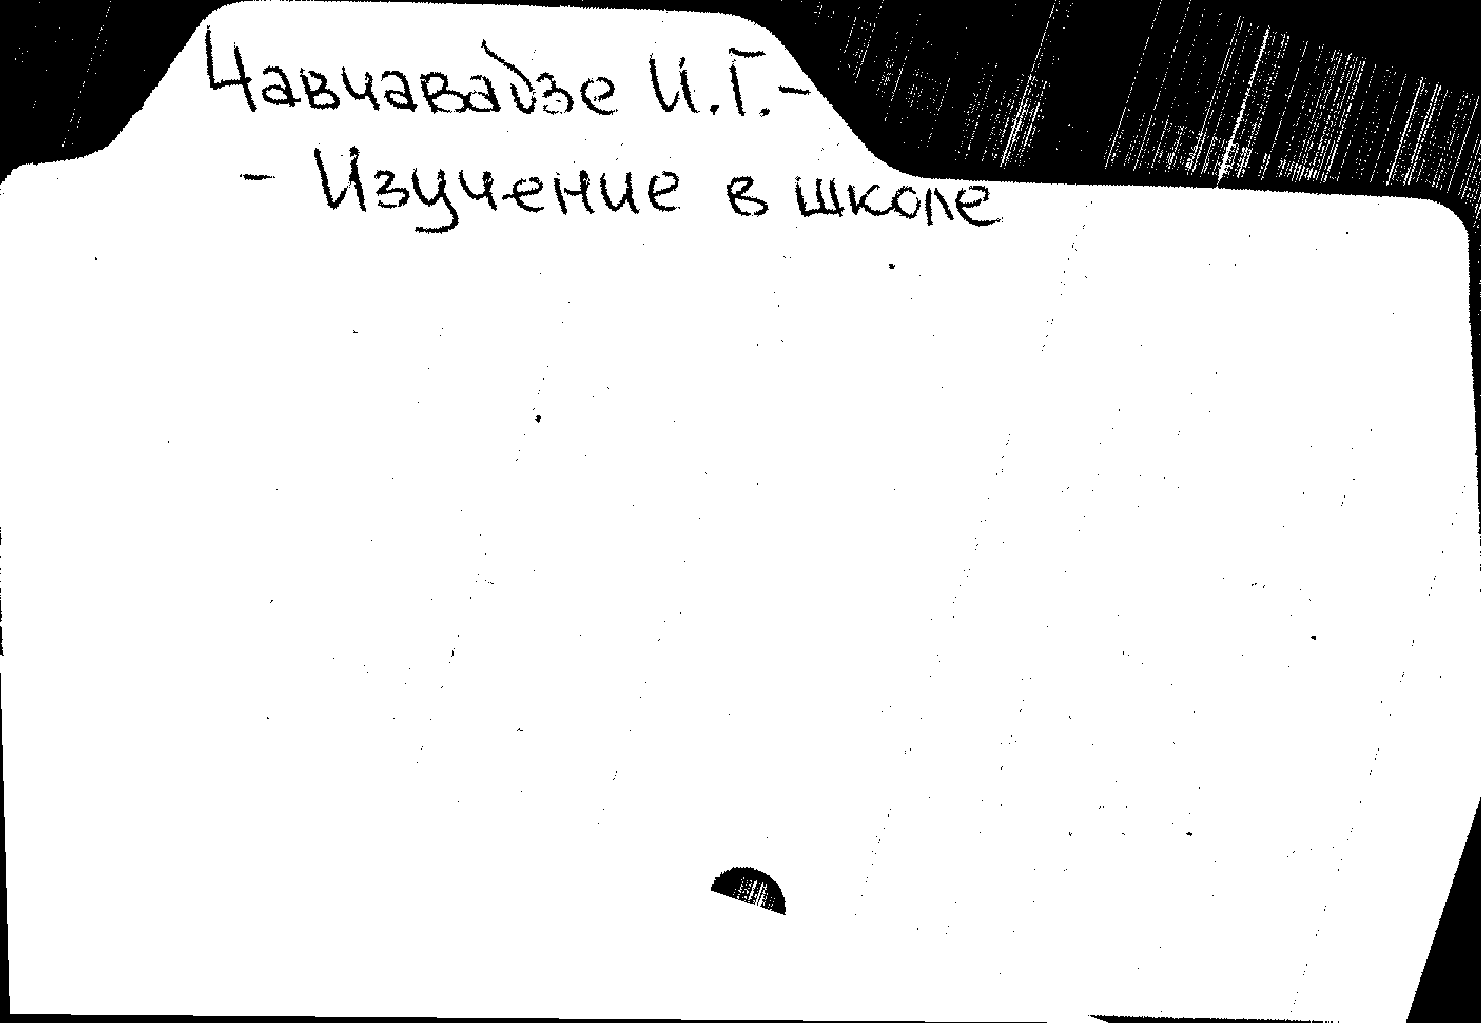 Чавчавадзе И.Г.-
- Изучение в школе